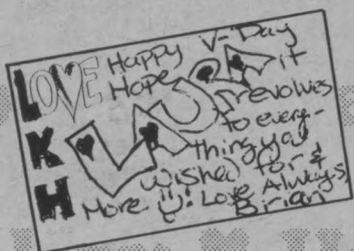 LOVE Happy V-Day
Hope LAURA it
K revolves
to every-
thing you
wished for &
H More Love Always,
Brian